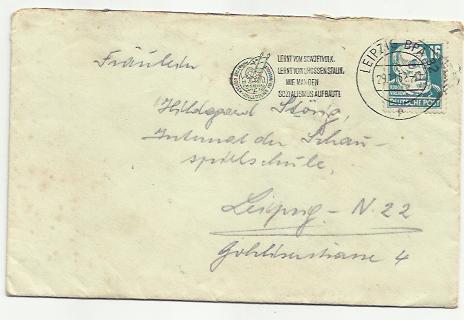 Fräulein
LERNT VOM SOWJETVOLK,
LERNT VOM GROSSEN STALIN,
WIE MAN DEN
SOZIALISMUS AUFBAUT!
LEIPZIG BPA
15
DEUTSCHE POST
Hildegard Störig,
Internat der Schau-
spielschule,
Leipzig - N. 22
Gohliserstrasse 4